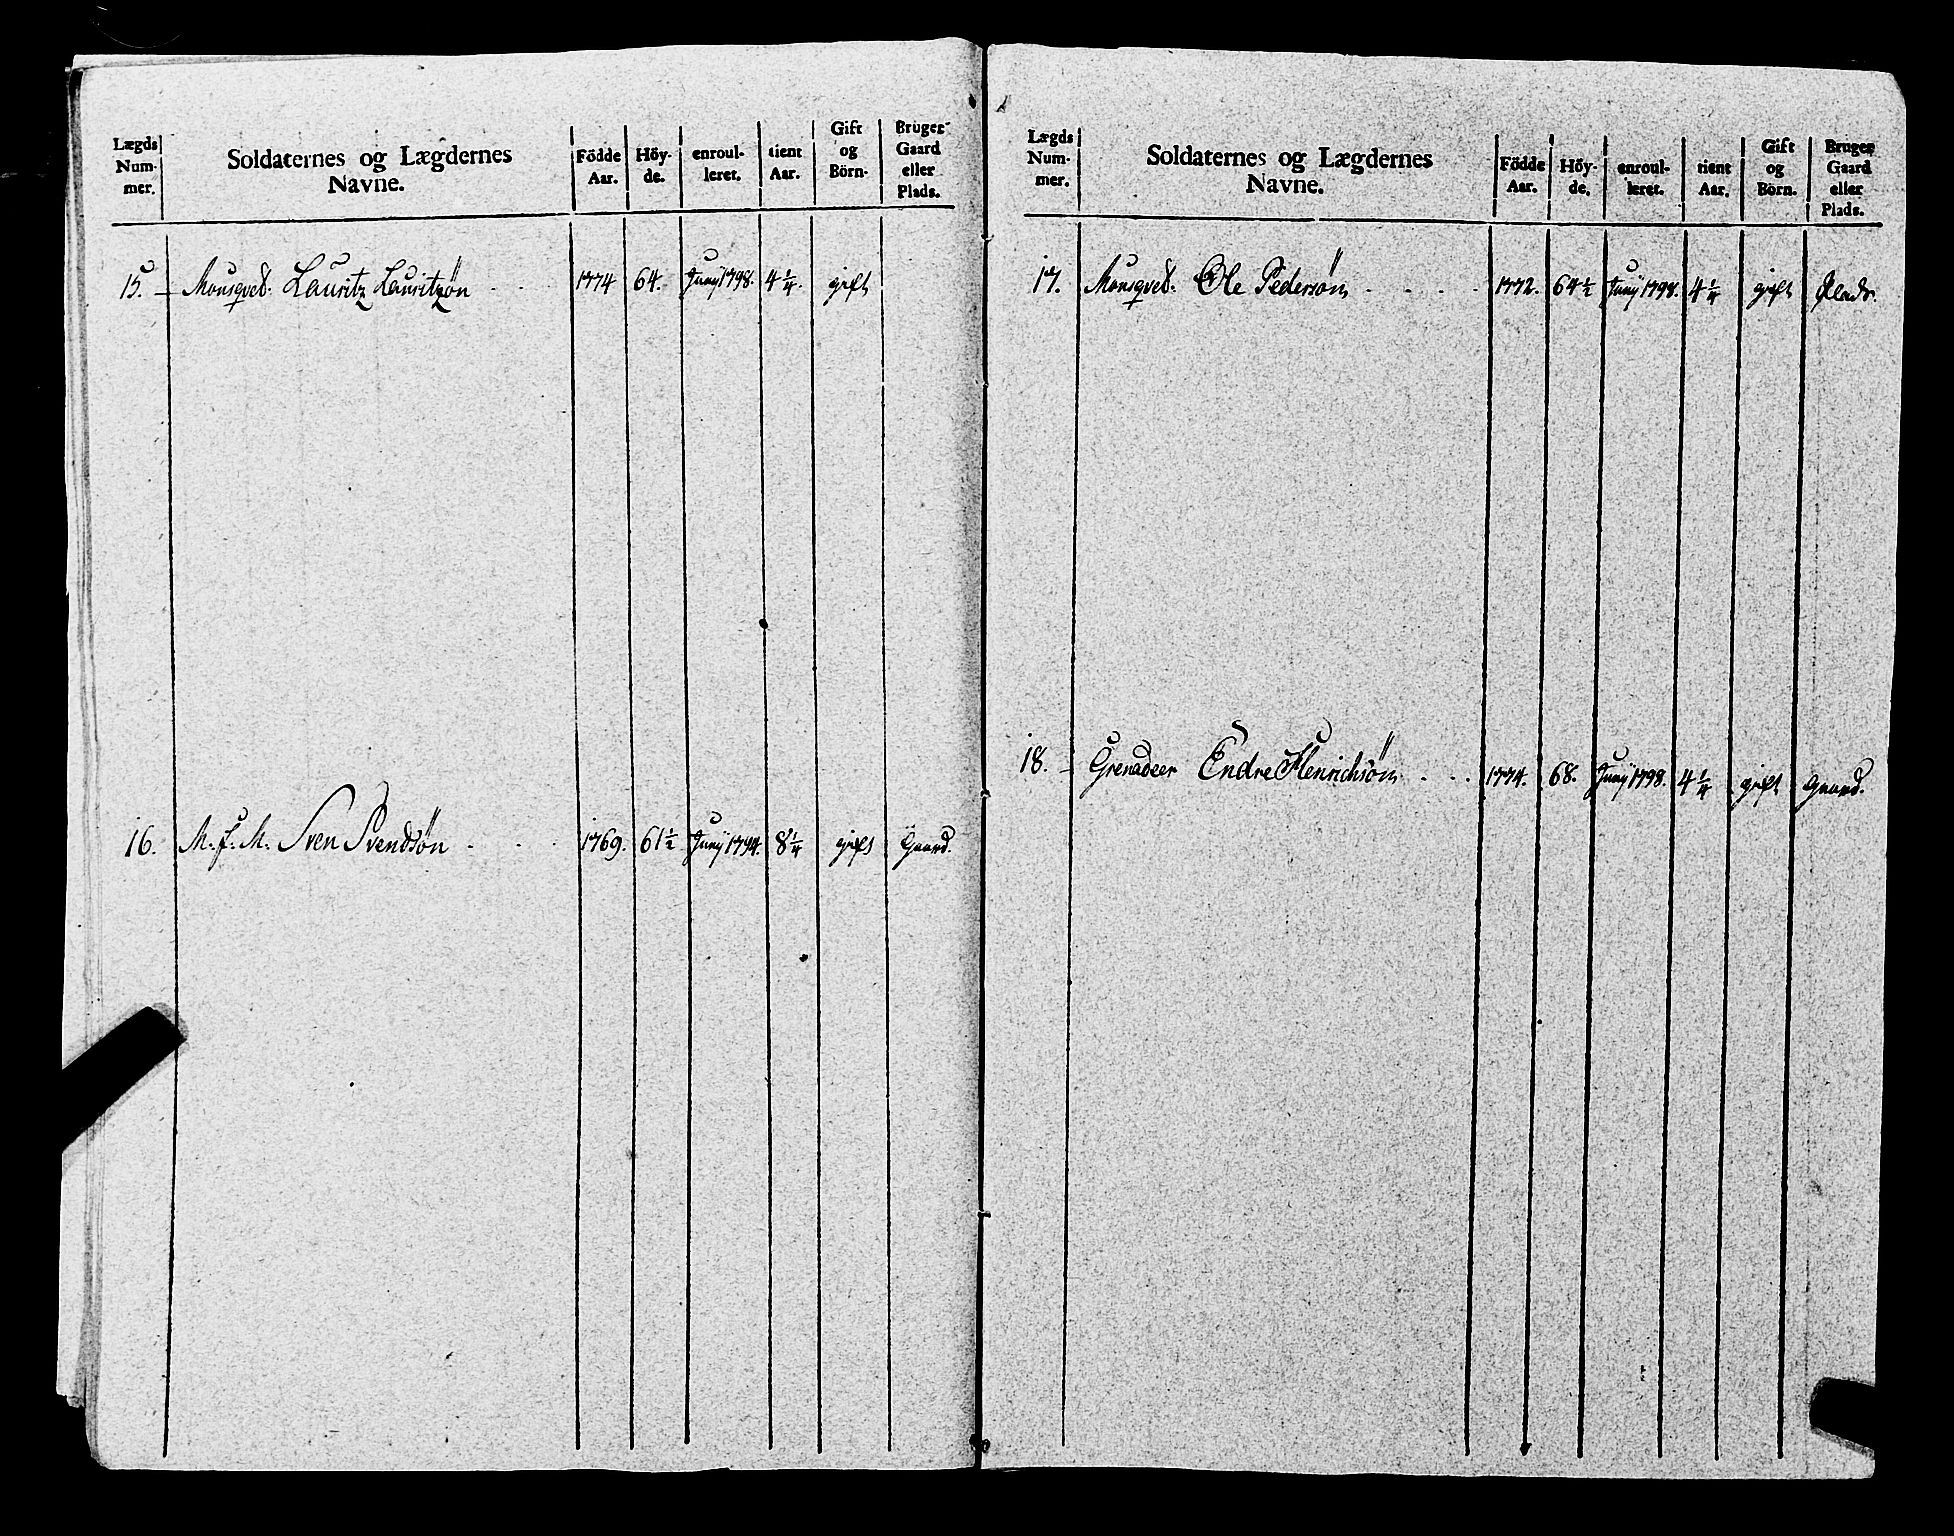 Lægds Num- mer. Soldaternes og Lægdernes Navne. Födde Aar. Höy- de. enroul- leret. tient Aar. Gift og Börn. Bruger Gaard eller Plads.
15. Mousqvet. Lauritz Lauritzön 1774 64. Junÿ 1798. 4 1/4. gift
16. M. f. M. Sven Svendsön 1769. 61 1/2 Junÿ 1794. 8 1/4 gift Gaard.
Lægds Num- mer. Soldaternes og Lægdernes Navne. Födde Aar. Höy- de. enroul- leret. tient Aar. Gift og Börn. Bruger Gaard eller Plads.
17. Mousqvet. Ole Pedersön 1772. 64 1/2 Junÿ 1798. 4 1/4 gift Plads.
18. Grenadeer Endre Henrichsön 1774. 68. Junÿ 1798. 4 1/4 gift Gaard.